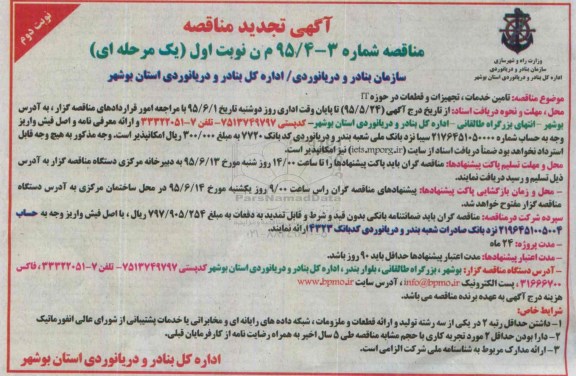 نوبت دوم
آگهی تجدید مناقصه
مناقصه شماره ۳-۹۵/۴ م ن نوبت اول (یک مرحله ای)
سازمان بنادر و دریانوردی/ اداره کل بنادر و دریانوردی استان بوشهر
وزارت راه و شهرسازی
سازمان بنادر و دریانوردی
اداره کل بنادر و دریانوردی استان بوشهر
موضوع مناقصه: تامین خدمات ، تجهیزات و قطعات در حوزه IT
محل ، مهلت و نحوه دریافت اسناد: از تاریخ درج آگهی (۹۵/۵/۲۳) تا پایان وقت اداری روز دوشنبه تاریخ ۹۵/۶/۱ با مراجعه امور قراردادهای مناقصه گزار ، به آدرس
بوشهر - انتهای بزرگراه طالقانی - اداره کل بنادر و دریانوردی استان بوشهر- کدپستی ۷۵۱۳۷۴۹۷۹۷ -تلفن ۷-۳۳۳۲۲۰۵۱ و ارائه معرفی نامه و اصل فیش واریز
وجه به حساب شماره ۲۱۷۶۴۵۱۰۵۰۰۰۰ سیبا نزد بانک ملی شعبه بندر و دریانوردی کد بانک ۷۷۲۰ به مبلغ ۳۰۰/۰۰۰ ریال امکانپذیر است. وجه مذکور به هیچ وجه قابل
استرداد نخواهد بود ضمناً دریافت اسناد از سایت (iets.mporg.ir) نیز امکانپذیر است.
- محل و مهلت تسلیم پاکت پیشنهادها: مناقصه گران باید پاکت پیشنهادها را تا ساعت ۱۴/۰۰ روز شنبه مورخ ۹۵/۶/۱۳ به دبیرخانه مرکزی دستگاه مناقصه گزار به آدرس
ذیل تسلیم و رسید دریافت نمایند.
- محل و زمان بازگشایی پاکت پیشنهادها: پیشنهادهای مناقصه گران راس ساعت ۹/۰۰ روز یکشنبه مورخ ۹۵/۶/۱۴ در محل ساختمان مرکزی به آدرس دستگاه
مناقصه گزار مفتوح خواهد شد.
سپرده شرکت در مناقصه: مناقصه گران باید ضمانتنامه بانکی بدون قید و شرط و قابل تمدید به دفعات به مبلغ ۷۹۷/۹۰۵/۲۵۴ ریال ، یا اصل فیش واریز وجه به حساب
۲۱۹۶۴۵۱۰۵۰۰۴ نزد بانک صادرات شعبه بندر و دریانوردی کدبانک ۴۳۲۳ ارائه نمایند.
- مدت پروژه: ۲۴ ماه
- مدت اعتبار پیشنهادها: مدت اعتبار پیشنهادها حداقل باید ۹۰ روز باشد.
- آدرس دستگاه مناقصه گزار: بوشهر ، بزرگراه طالقانی ، بلوار بندر ، اداره کل بنادر و دریانوردی استان بوشهر کدپستی ۷۵۱۳۷۴۹۷۹۷- تلفن ۷-۳۳۳۲۲۰۵۱ ، فاکس
۳۱۶۶۶۷۰۰ ، پست الکترونیک info@bpmo.ir ، آدرس سایت www.bpmo.ir
هزینه درج آگهی به عهده برنده مناقصه می باشد.
شرایط خاص:
۱- داشتن حداقل رتبه ۲ در یکی از سه رشته تولید و ارائه قطعات و ملزومات ، شبکه داده های رایانه ای و مخابراتی یا خدمات پشتیبانی از شورای عالی انفورماتیک
۲- دارا بودن حداقل ۲ مورد تجربه کاری با حجم مشابه مناقصه طی ۵ سال اخیر به همراه رضایت نامه از کارفرمایان قبلی.
۳- ارائه مدارک مربوط به شناسنامه ملی شرکت الزامی است.
اداره کل بنادر و دریانوردی استان بوشهر